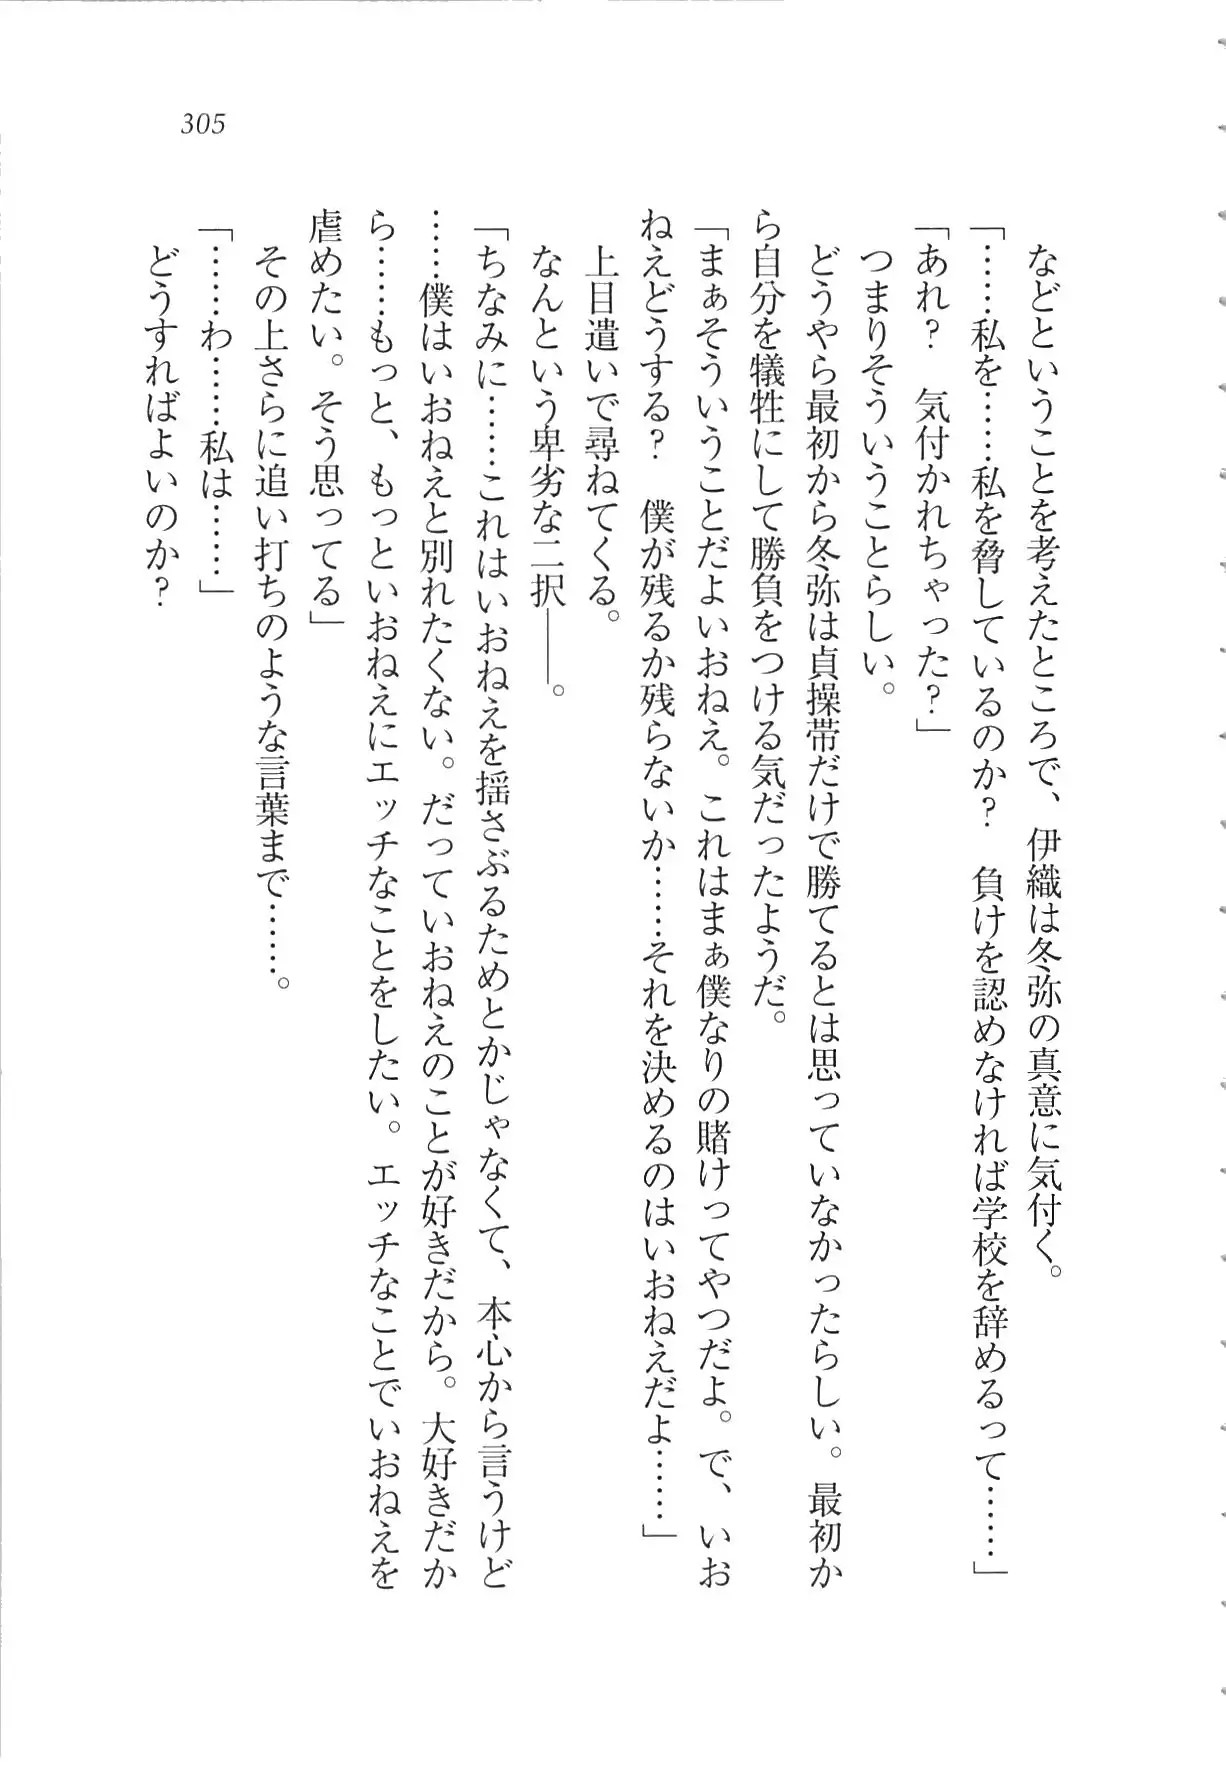 305
などということを考えたところで、伊織は冬弥の真意に気付く。
「……私を……私を脅しているのか？　負けを認めなければ学校を辞めるって……」
「あれ？　気付かれちゃった？」
つまりそういうことらしい。
どうやら最初から冬弥は貞操帯だけで勝てるとは思っていなかったらしい。最初か
ら自分を犠牲にして勝負をつける気だったようだ。
「まぁそういうことだよいおねえ。これはまぁ僕なりの賭けってやつだよ。で、いお
ねえどうする？　僕が残るか残らないか……それを決めるのはいおねえだよ……」
上目遣いで尋ねてくる。
なんという卑劣な二択――。
「ちなみに……これはいおねえを揺さぶるためとかじゃなくて、本心から言うけど
……僕はいおねえと別れたくない。だっていおねえのことが好きだから。大好きだか
ら……もっと、もっといおねえにエッチなことをしたい。エッチなことでいおねえを
虐めたい。そう思ってる」
その上さらに追い打ちのような言葉まで……。
「……わ……私は……」
どうすればよいのか？